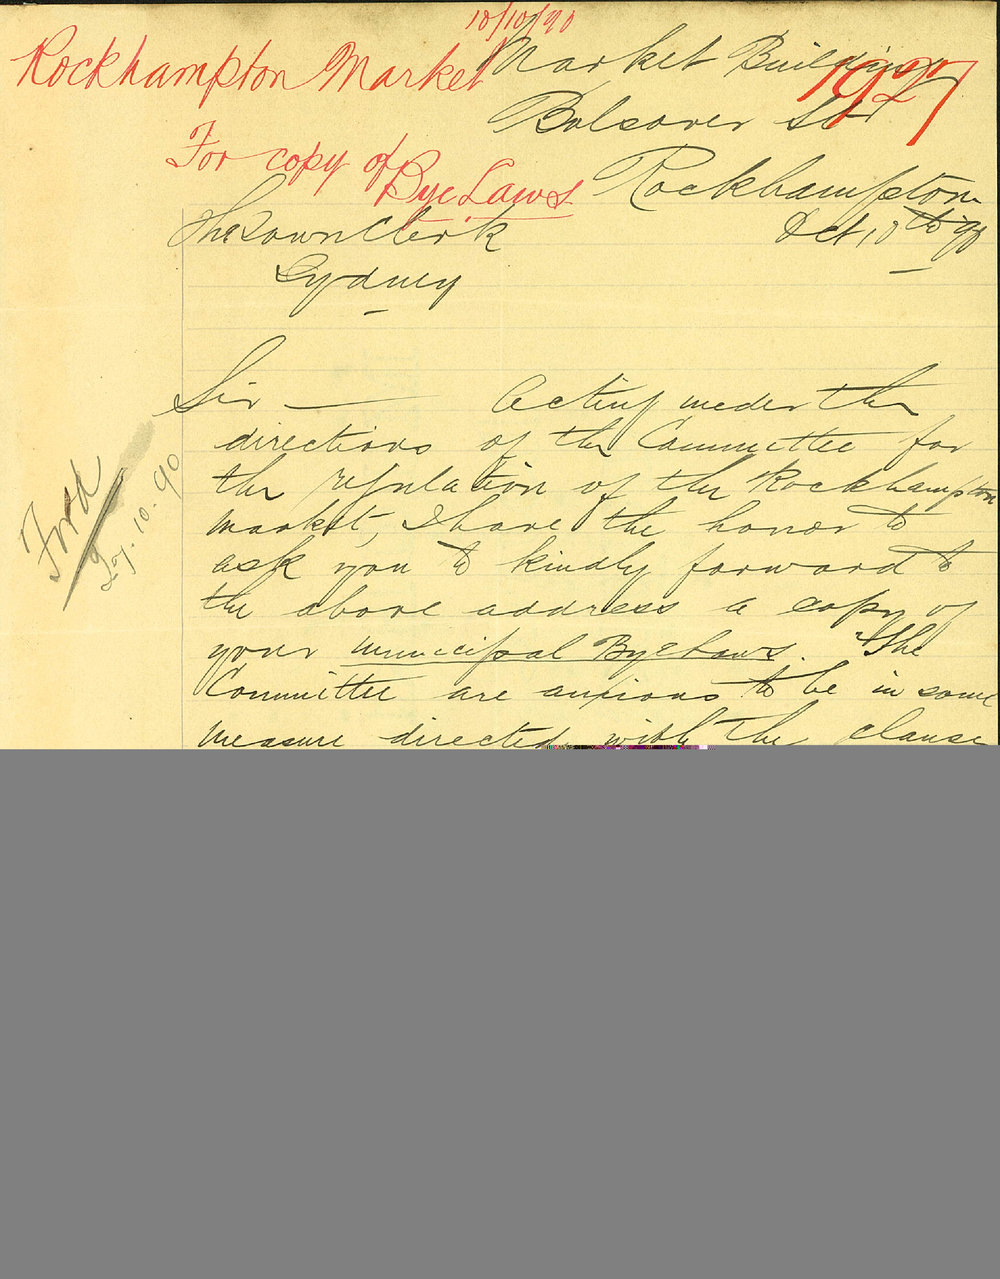 10/10/90
Rockhampton Market
1927
Market Buildings
Bolsover St
For copy of
Bye Laws
Rockhampton
Oct, 10th 90
The Town Clerk
Sydney
Sir — Acting under the
directions of the Committee for
the regulation of the Rockhampton
Market, I have the honor to
ask you to kindly forward to
the above address a copy of
your Municipal Bye Laws. The
Committee are anxious to be in some
measure directed with the clause
Fwd
27.10.90